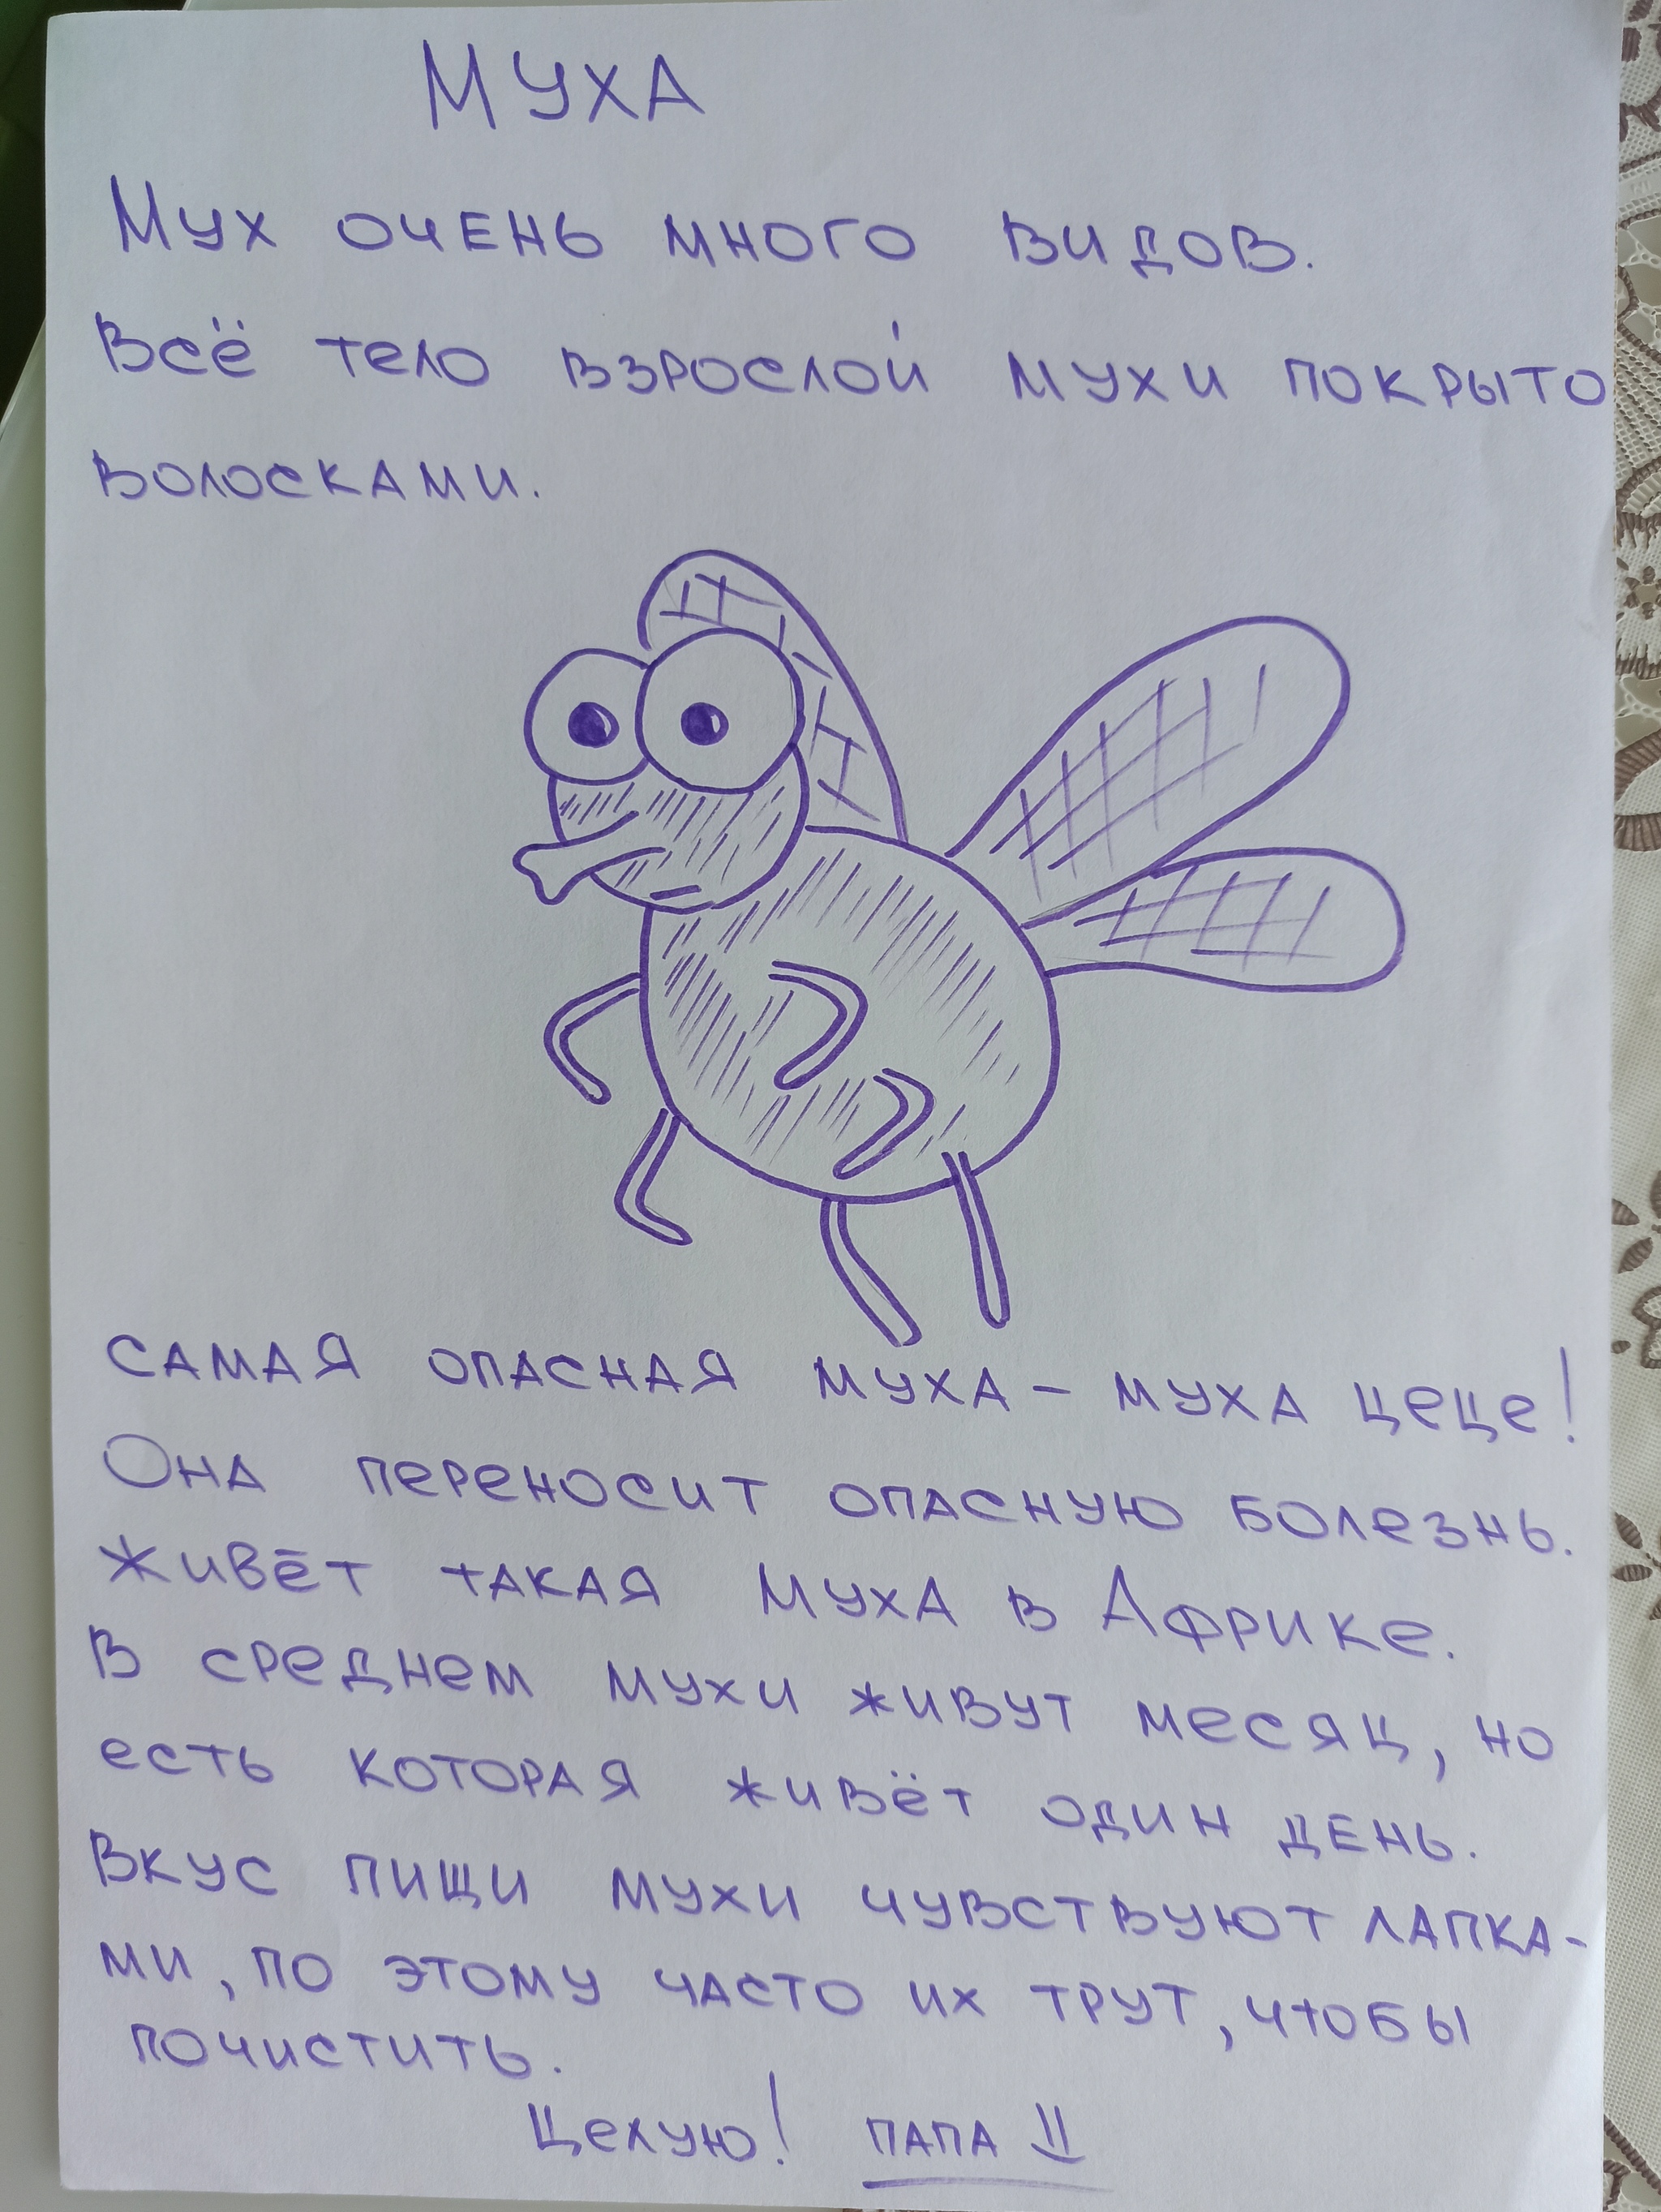 МУХА
Мух очень много видов.
Всё тело взрослой мухи покрыто
волосками.
самая опасная муха - муха цеце!
Она переносит опасную болезнь.
Живёт такая муха в Африке.
В среднем мухи живут месяц, но
есть которая живёт один день.
Вкус пищи мухи чувствуют лапка-
ми, по этому часто их трут, чтобы
почистить.
Целую! папа